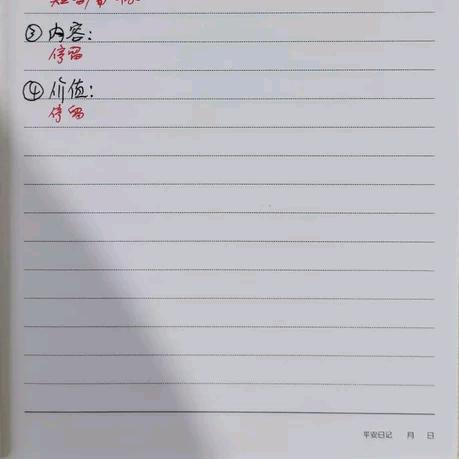 ③ 内容:
停留
④ 价值:
停留
平安日记 月 日